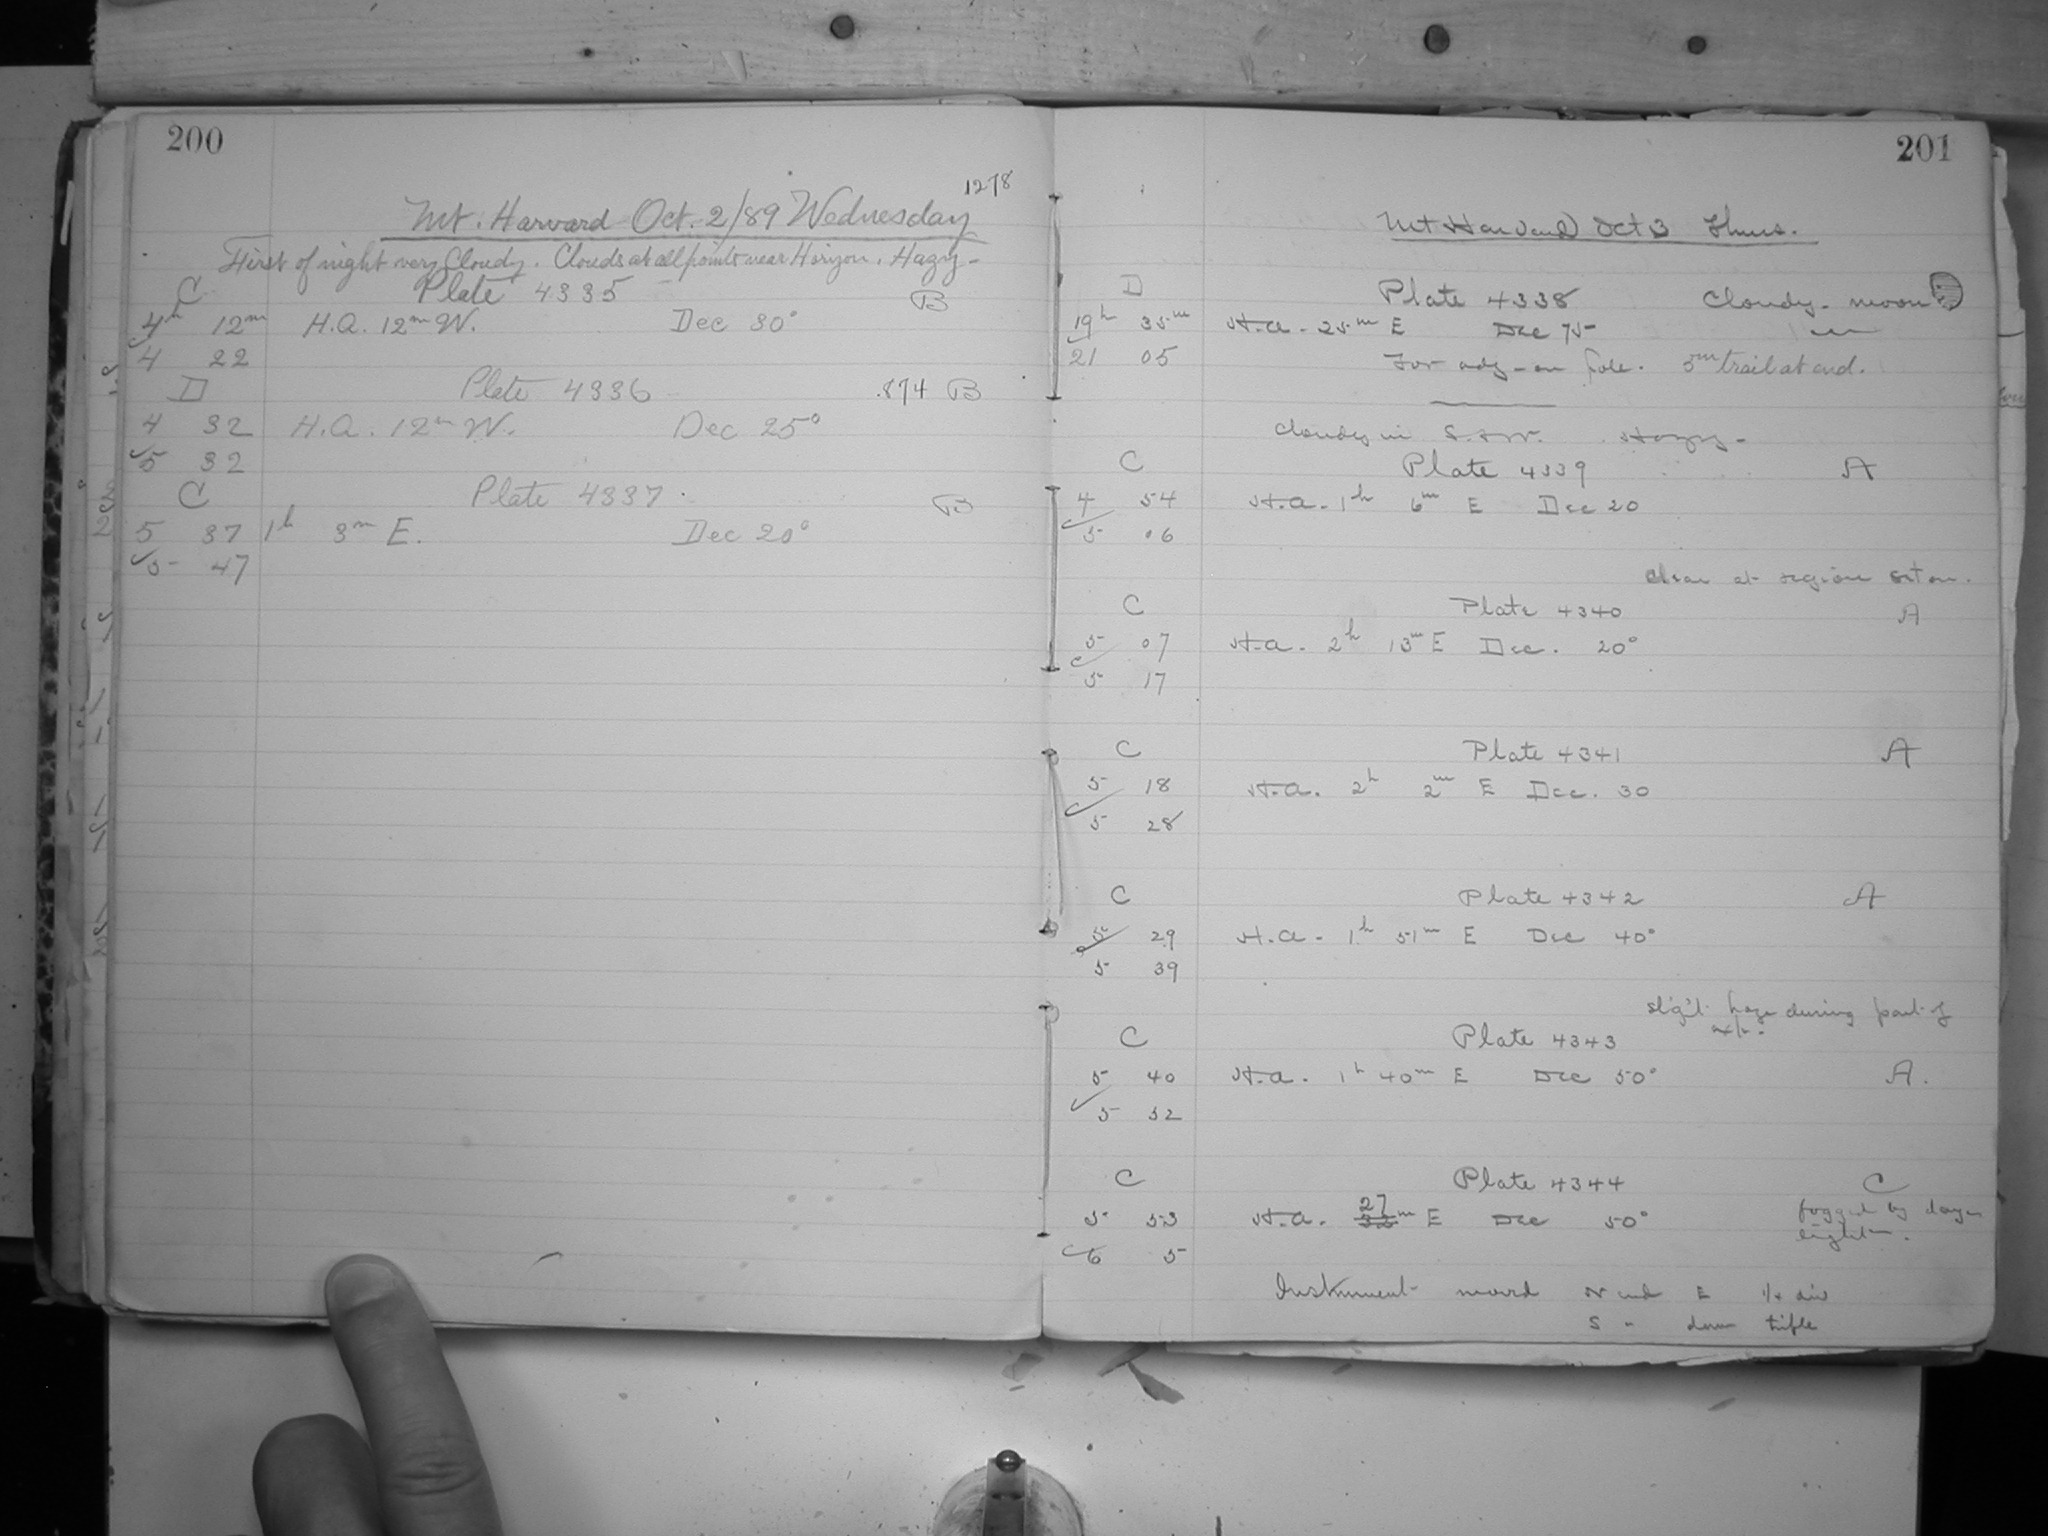 200
1278
Mt. Harvard Oct. 2/89 Wednesday
First of night very Cloudy. Clouds at all points near Horizon. Hazy-
C Plate 4335 B
4h 12m H.A. 12m W. Dec 30°
4 22
D Plate 4336 .874 B
4 32 H.A. 12m W. Dec 25°
5 32
C Plate 4337 B
5 37 1h 3m E. Dec 20°
5 47
201
Mt Harvard Oct 3 Thurs.
D Plate 4338 Cloudy - moon
19h 35m H.a. 25m E Dec 75
21 05 For adj - on Pole. 5m trail at end.
Cloudy in S. & W. Hazy -
C Plate 4339 A
4 54 H.a. 1h 6m E Dec 20
5 06
Clear at region set on.
C Plate 4340 A
5 07 H.a. 2h 13m E Dec. 20°
5 17
C Plate 4341 A
5 18 H.a. 2h 2m E Dec. 30
5 28
C Plate 4342 A
5 29 H.a. 1h 51m E Dec 40°
5 39
Slg't haze during part of
exp.
C Plate 4343
5 40 H.a. 1h 40m E Dec 50° A.
5 52
C Plate 4344 C
5 53 H.a. 27m E Dec 50° fogged by day
light.
6 5
Instrument moved N end E 1/4 div
S " down trifle